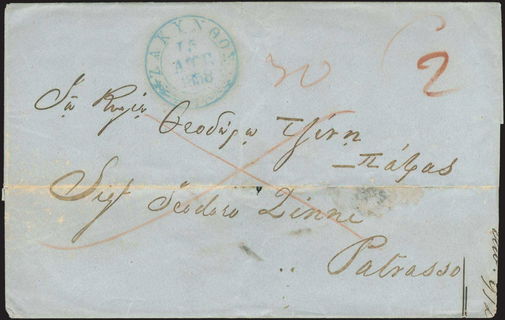 ΖΑΚΥΝΘΟΣ
15
ΑΥΓ.
1858
30
2
Τῷ Κυρίῳ Θεοδώρῳ Τζίνῃ
Πάτρας
Sigr Teodoro Zinni
Patrasso